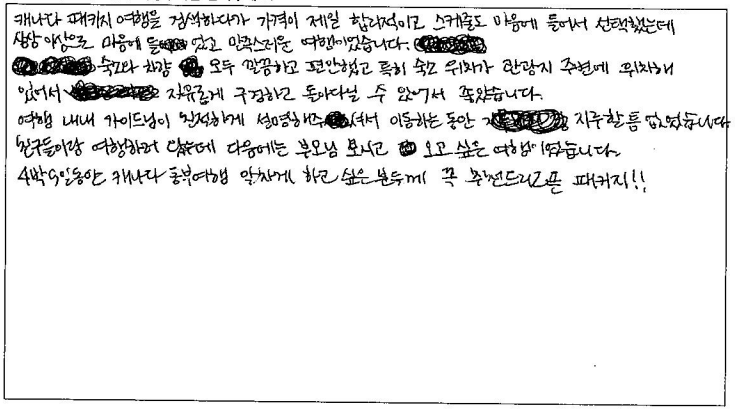 캐나다 패키지 여행을 검색하다가 가격이 제일 합리적이고 스케줄도 마음에 들어서 선택했는데
상상 이상으로 마음에 들었고 만족스러운 여행이었습니다.
숙소와 차량 모두 깔끔하고 편안했고 특히 숙소 위치가 관광지 주변에 위치해
있어서 자유롭게 구경하고 돌아다닐 수 있어서 좋았습니다.
여행 내내 가이드님이 친절하게 설명해주셔서 이동하는 동안 지루할 틈 없었습니다
친구들이랑 여행하러 왔는데 다음에는 부모님 모시고 오고 싶은 여행이었습니다.
4박5일동안 캐나다 동부여행 알차게 하고 싶은 분들께 꼭 추천드리고픈 패키지!!